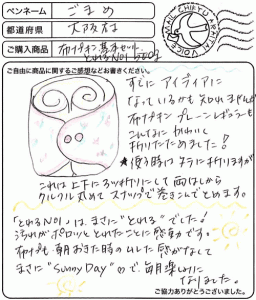 ペンネーム ごまめ
都道府県 大阪府
ご購入商品 布ナプキン基本セット
とれるNo1 500g
ご自由に商品に関するご感想などお書きください。
すでに アイディアに
なっているかも 知れませんが
布ナプキン プレーン
こんなに かわいく
折りたためました!
★使う時はキラに折りますが
これは上下に3つ折りにして 両はしから
クルクル丸めて スナップで巻きこんでとめます。
「とれるNo1」は、まさに"とれる"でした!
汚れがポロッと とれたことに 感動です。
布ナプも 朝おきた時のムレた感がなくて
まさに "Sunny Day" で、毎月楽しみに
なりました。
ご協力ありがとうございました。